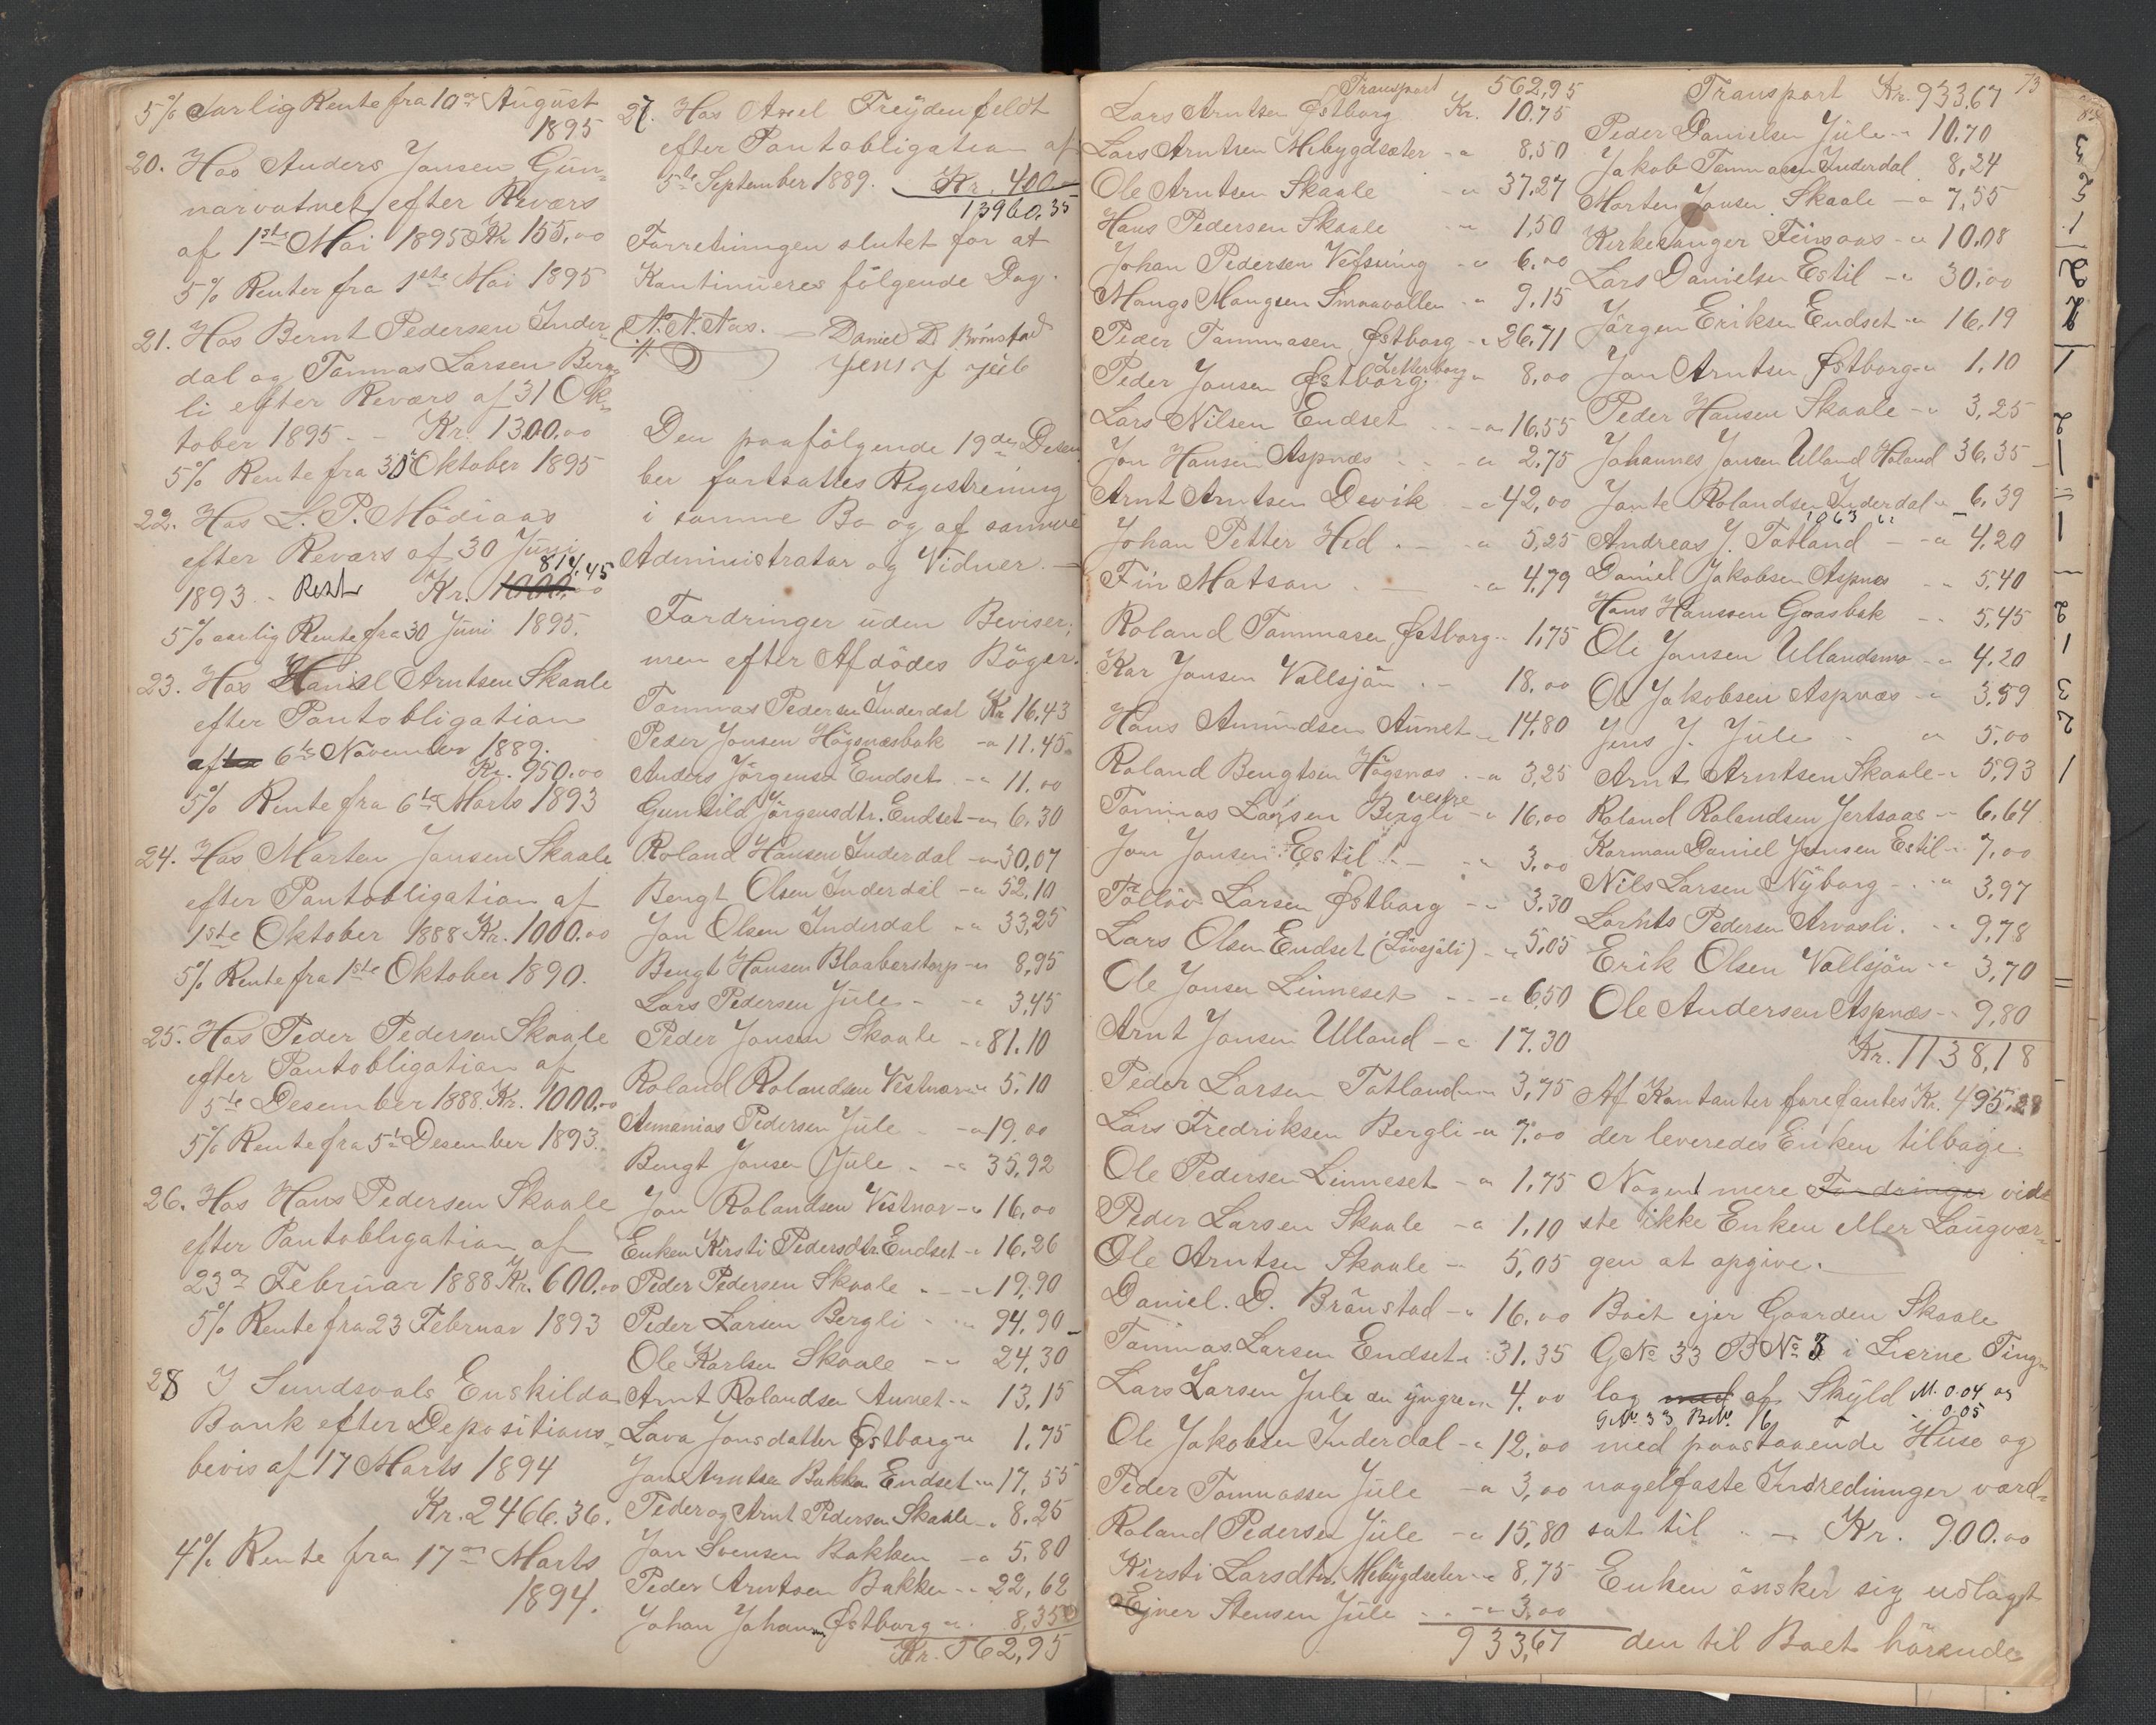 5% aarlig Rente fra 10de August
1895
20. Hos Anders Jonsen Gun-
narvatnet efter Revers
af 1ste Mai 1895 Kr. 155,00
5% Renter fra 1ste Mai 1895
21. Hos Bernt Pedersen Inder-
dal og Tommas Larsen Berg-
li efter Revers af 31 Ok-
tober 1895 - - Kr. 1300,00
5% Rente fra 30te Oktober 1895
22. Hos L. P. Mödiaas
efter Revers af 30 Juni
814,45
1893 - Rest Kr. 1000,00
5% aarlig Rente fra 30 Juni 1895.
23. Hos Daniel Arntsen Skaale
efter Pantobligation
af 6te November 1889.
Kr. 950,00
5% Rente fra 6te Marts 1893
24. Hos Morten Jonsen Skaale
efter Pantobligation af
1ste Oktober 1888 Kr. 1000,00
5% Rente fra 1ste Oktober 1890.
25. Hos Peder Pedersen Skaale
efter Pantobligation af
5te Desember 1888. Kr. 1000,00
5% Rente fra 5te Desember 1893.
26. Hos Hans Pedersen Skaale
efter Pantobligation af
23de Februar 1888 Kr. 600,00
5% Rente fra 23 Februar 1893
28 I Sundsvals Enskilda
Bank efter Depositions-
bevis af 17 Marts 1894
Kr. 2466.36.
4% Rente fra 17de Marts
1894.
27. Hos Axel Freydenfeldt
efter Pantobligation af
5te September 1889. Kr. 400
13960.35
Forretningen sluttet for at
Kontinueres følgende Dag.
N. N. Aas. Daniel D. Brönstad
Jens J Jule
Den paafölgende 19de Desem-
ber fortsattes Registrering
i samme Bo og af samme
Administrator og Vidner. -
Fordringer uden Beviser;
men efter Afdödes Böger.
Tommas Pedersen Inderdal Kr 16,43
Peder Jonsen Högsnæsbak -" 11.45
Anders Jörgensen Endset -" 11.00
Gunhild Jörgensdtr. Endset -" 6.30
Roland Hansen Inderdal -" 30,07
Bengt Olsen Inderdal -" 52,10
Jon Olsen Inderdal -" 33,25
Bengt Hansen Blaaberstorp -" 8,95
Lars Pedersen Jule - -" 3,45
Peder Jonsen Skaale -" 81.10
Roland Rolandsen Vestnor -" 5.10
Annanias Pedersen Jule -" 19,00
Bengt Jonsen Jule - -" 35,92
Jon Rolandsen Vestnor -" 16,00
Enken Kirsti Pedersdtr. Endset -" 16,26
Peder Pedersen Skaale - -" 19,90
Peder Larsen Bergli - " 94,90
Ole Karlsen Skaale -" 24,30
Arnt Rolandsen Aunet -" 13,15
Lava Jonsdatter Östborg -" 1.75
Jon Arntsen Bakken Endset -" 17,55
Peder og Arnt Pedersen Skaale -" 8.25
Jon Svensen Bakken -" 5,80
Peder Arntsen Bakken -" 22,62
Johan Johansen Östborg -" 8,35
Kr. 562,95
Transport 562,95
Lars Arntsen Østborg Kr. 10.75
Lars Arntsen Mebygdsæter -" 8,50
Ole Arntsen Skaale -" 37,27
Hans Pedersen Skaale -" 1,50
Johan Pedersen Vefsning -" 6,00
Mangs Mangsen Smaavollen -" 9,15
Peder Tommasen Østborg -" 26,71
Zetterborg
Peder Jonsen Østborg " 8,00
Lars Nilsen Endset -" 16,55
Jon Hansen Aspnæs -" 2,75
Arnt Arntsen Devik -" 42,00
Johan Petter Hed -" 5,25
Fin Matson -" 4,79
Roland Tommasen Østborg -" 1,75
Kar Jonsen Vallsjön - 18,00
Hans Amundsen Aunet -" 14,80
Roland Bengtsen Högsnæs -" 3,25
vestre
Tommas Larsen Bergli -" 16,00
Jon Jonsen Estil - -" 3,00
Tölløv Larsen Østborg -" 3,30
Lars Olsen Endset (Lövsjöli) -" 5,05
Ole Jonsen Linneset - -" 6,50
Arnt Jonsen Ulland -" 17.30
Peder Larsen Totland -" 3,75
Lars Fredriksen Bergli -" 7,00
Ole Pedersen Linneset -" 1,75
Peder Larsen Skaale -" 1,10
Ole Arntsen Skaale -" 5,05
Daniel. D. Brönstad -" 16,00
Tommas Larsen Endset -" 31,35
Lars Larsen Jule den yngre -" 4,00
Ole Jakobsen Inderdal -" 12,00
Peder Tommassen Jule -" 3,00
Roland Pedersen Jule -" 15,80
Kirsti Larsdtr. Mebygdseter -" 8,75
Ejner Stensen Jule -" 3,00
933,67
73
Transport Kr. 933,67
Peder Danielsen Jule -" 10,70
Jakob Tommasen Inderdal 8,24
Morten Jonsen Skaale -" 7,55
Kirkesanger Finsaas -" 10.08
Lars Danielsen Estil -" 30,00
Jörgen Eriksen Endset -" 16,19
Jon Arntsen Østborg -" 1,10
Peder Hansen Skaale -" 3,25
Johannes Jonsen Ulland Holand 36,35
Jonte Rolandsen Inderdal -" 6,39
1063
Andreas J. Totland -" 4,20
Daniel Jakobsen Aspnæs -" 5,40
Hans Hanssen Gaasbak -" 5,45
Ole Jonsen Ullandsmo -" 4,20
Ole Jakobsen Aspnæs -" 3,59
Jens J. Jule " 5,00
Arnt Arntsen Skaale -" 5,93
Roland Rolandsen Jertsaas -" 6,64
Korman Daniel Jonsen Estil -" 7,00
Nils Larsen Nyborg -" 3,97
Pedersen Arvasli. -" 9,78
Erik Olsen Vallsjön -" 3,70
Ole Andersen Aspnæs -" 9,80
Kr. 1138,18
Af Kontanter forefantes Kr. 495,28
der leveredes Enken tilbage.
Noget mere Fordringer vid-
ste ikke Enken eller Laugvær-
gen at opgive.
Boet ejer Gaarden Skaale
GNo 33 BNo 3 i Lierne Ting-
lag med af Skyld M. 0.04 og
GNo. 33 BNo. 16 0.05
med paastaaende Huse og
nagelfaste Indredninger værd-
sat til - Kr. 900.00
Enken önsker sig udlagt
den til Boet hörende